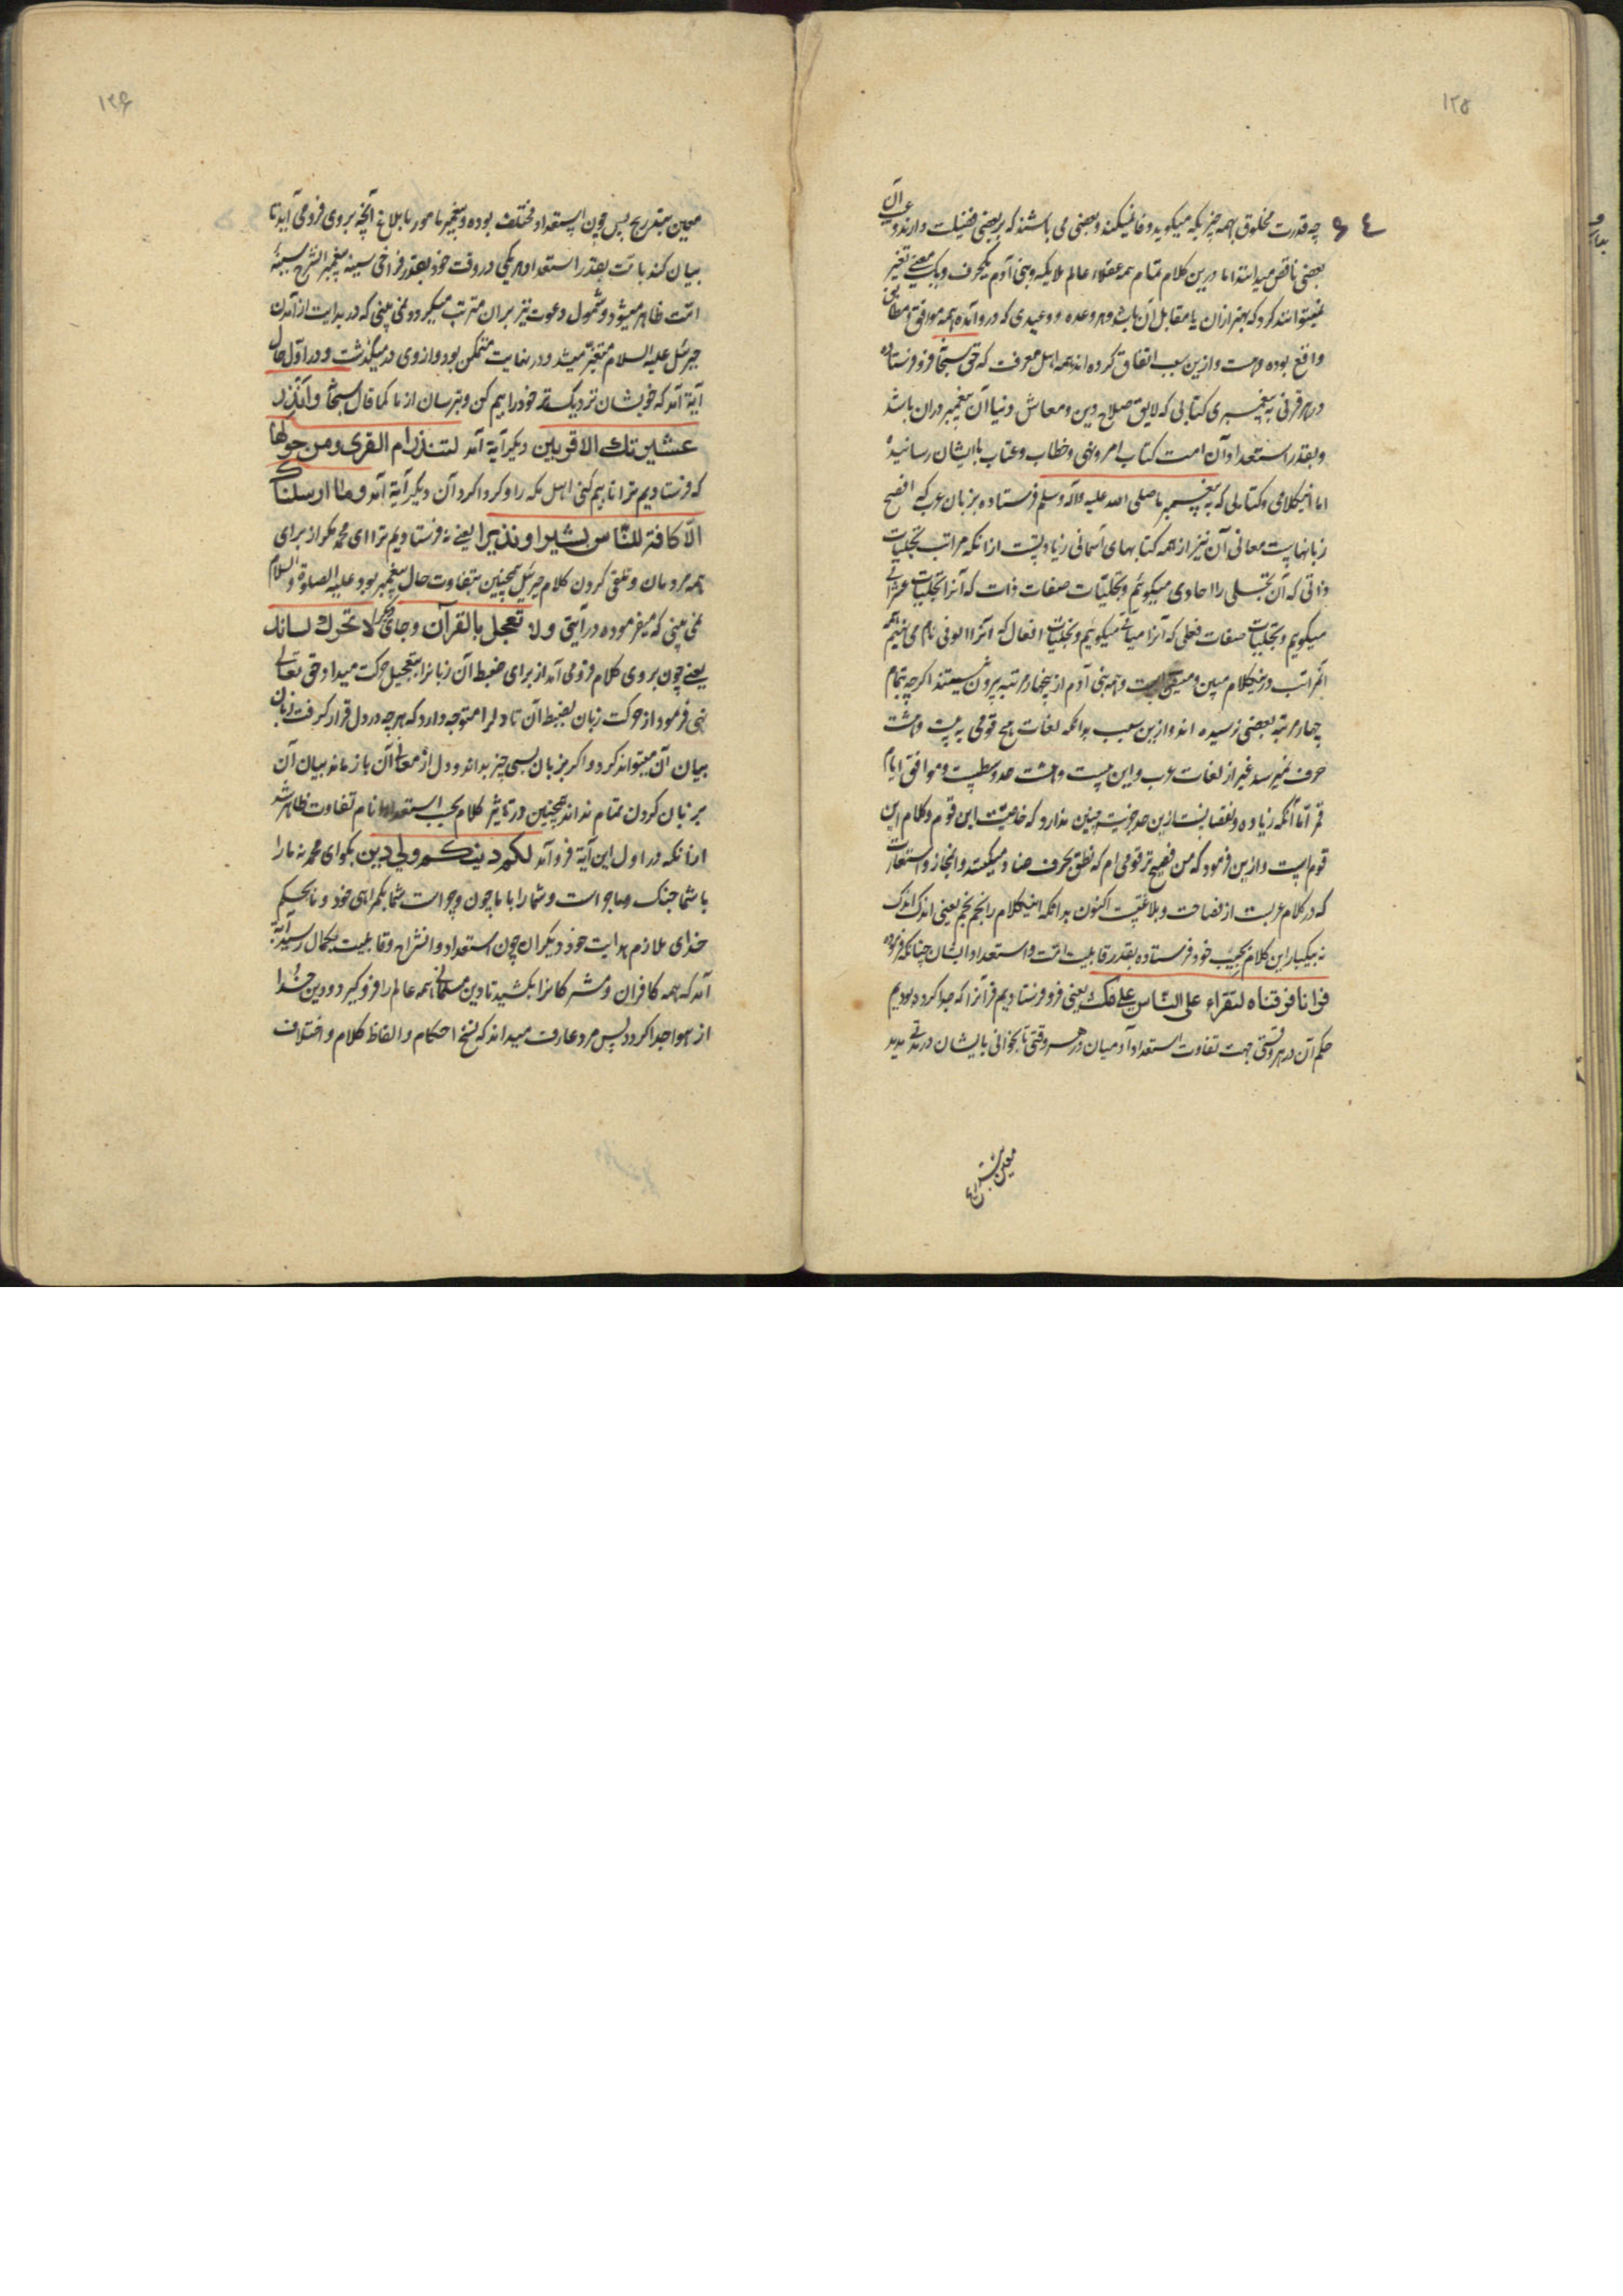 ۱۲۵
۶۴
چه قدرت مخلوق بهمه چیزیکه میکوید وفا نمیکند و بعضی می باشند که بر بعضی فضیلت دارند و
بعضی ناقص میدانند اما درین کلام تمام همه عقلاء عالم ملایکه و بنی آدم یکحرف و یک معنی تغیر
نمیتوانند کرد که بهتر ازان یا مقابل آن باشد و هر وعده و وعیدی که درو آمده همه موافق و مطابق
واقع بوده و هست و ازین سبب اتفاق کرده اند همه اهل معرفت که حق سبحانه فرو فرستاده
در هر قرنی به پیغمبری کتابی که لایق صلاح دین و معاش دنیا آن پیغمبر دران باشد
و بقدر استعداد آن امت کتاب امر و نهی و خطاب و عتاب با ایشان رسانیده
اما اینکلامی و کتابی که به پیغمبر ما صلی الله علیه وآله وسلم فرستاده بزبان عرب که افصح
زبانهاست معانی آن نیز از همه کتابهای آسمانی زیاد تست ازانکه مراتب تجلیات
ذاتی که آن تجلی را احادی میکوئیم و تجلیات صفات ذات که آنرا تجلیات عشراتی
میکویم و تجلیات صفات فعلی که آنرا میاتی میکوئیم و تجلیات افعال که آنرا الوفی نام می نهیم
مراتب درینکلام مبین و همه بنی آدم ازین چهار مرتبه بیرون نیستند اکرچه بتمام
چهار مرتبه بعضی نرسیده اند و ازین سبب بدانکه لغات هیچ قومی به بیست و هشت
حرف نمیرسد غیر از لغات عرب و این بیست و هشت حد وسطیست و موافق ایام
قمر اما آنکه زیاده و نقصانست ازین حد جزئیت چنین ندارد که خاصیت این قوم و کلام این
قوم است و ازین فرمود که من فصیح تر قومی ام که نطق بحرف ضاد میکنند و ایجاز و استعارت
که در کلام عربست از فصاحت و بلاغتست اکنون بدانکه اینکلام را نجم نجم یعنی اندک اندک
نه بیکبار این کلام بحبیب خود فرستاده بقدر قابلیت امت و استعداد ایشان چنانکه فرموده
قرانا فرقناه لتقراء علی الناس علی مکث یعنی فرو فرستادیم قرآنرا که جدا کرده بودیم
حکم آن در هر وقتی جهت تفاوت استعداد آدمیان در هر وقتی تا بخوانی بایشان در مدتی مدید
۱۲۶
معین بتدریج پس چون استعداد مختلف بوده و پیغمبر مامور بابلاغ آنچه بروی فرو می آید تا
بیان کند بامت بقدر استعداد هر یکی در وقت خود بقدر فراخی سینه پیغمبر انشرح سینهٔ
امت ظاهر میشود و شمول دعوت نیز بران مترتب میکردد نمی بینی که در بدایت از آمدن
جبرئیل علیه السلام متغیر میشد و در نهایت متمکن بود و ازوی در میکذشت و در اول حال
آیة آمد که خویشان نزدیکتر خود را بیم کن و بترسان از ما کما قال سبحانه وانذر
عشیرتک الاقربین دیکر آیة آمد لتنذر ام القری ومن حولها
که فرستادیم ترا تا بیم کنی اهل مکه را و کرداکرد آن دیکر آیة آمد وما ارسلناک
الا کافة للناس بشیرا ونذیرا یعنی نه فرستادیم ترا ای محمد مکر از برای
همه مردمان و تلقی کردن کلام جبرئیل همچنین بتفاوت حال پیغمبر بود علیه الصلوة والسلام
نمی بینی که میفرموده در آیتی ولا تعجل بالقرآن و جای دیکر لا تحرک لسانک
یعنی چون بروی کلام فرو می آمد از برای ضبط آن زبانرا بتعجیل حرکت میداد حق تعالی
نهی فرمود از حرکت زبان بضبط آن تا دلرا متوجه دارد که هرچه در دل قرار کرفت زبان
بیان آن میتواند کرد و اکر بزبان بسی چیز بداند و دل از معانی آن باز ماند بیان آن
بر زبان کردن بتمام نداند همچنین در تاثیر کلام بحسب استعداد انام تفاوت ظاهر شد
ازانکه در اول این آیة فرو آمد لکم دینکم ولی دین بکو ای محمد نه مارا
با شما جنک و ماجراست و شما را با ما چون و چراست شما بکمراهی خود و ما بحکم
خدای ملازم هدایت خود دیکران چون استعداد و انشراح و قابلیت بکمال رسید آیة
آمد که همه کافران و مشرکانرا بکشید تا دین مسلمانی همه عالم را فرو کیرد و دین خدا
از هوا جدا کردد پس مرد عارف میداند که نسخ احکام و الفاظ کلام و اختلاف